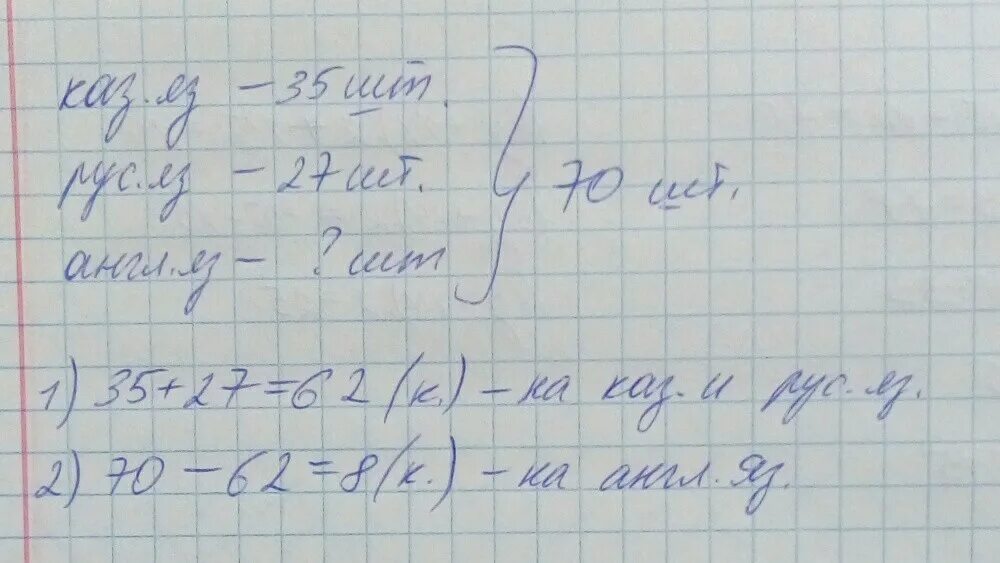 каз.яз – 35 шт.
рус.яз – 27 шт.
англ.яз – ? шт
70 шт.
1) 35+27=62 (к.) – на каз. и рус. яз.
2) 70 – 62 = 8 (к.) – на англ. яз.